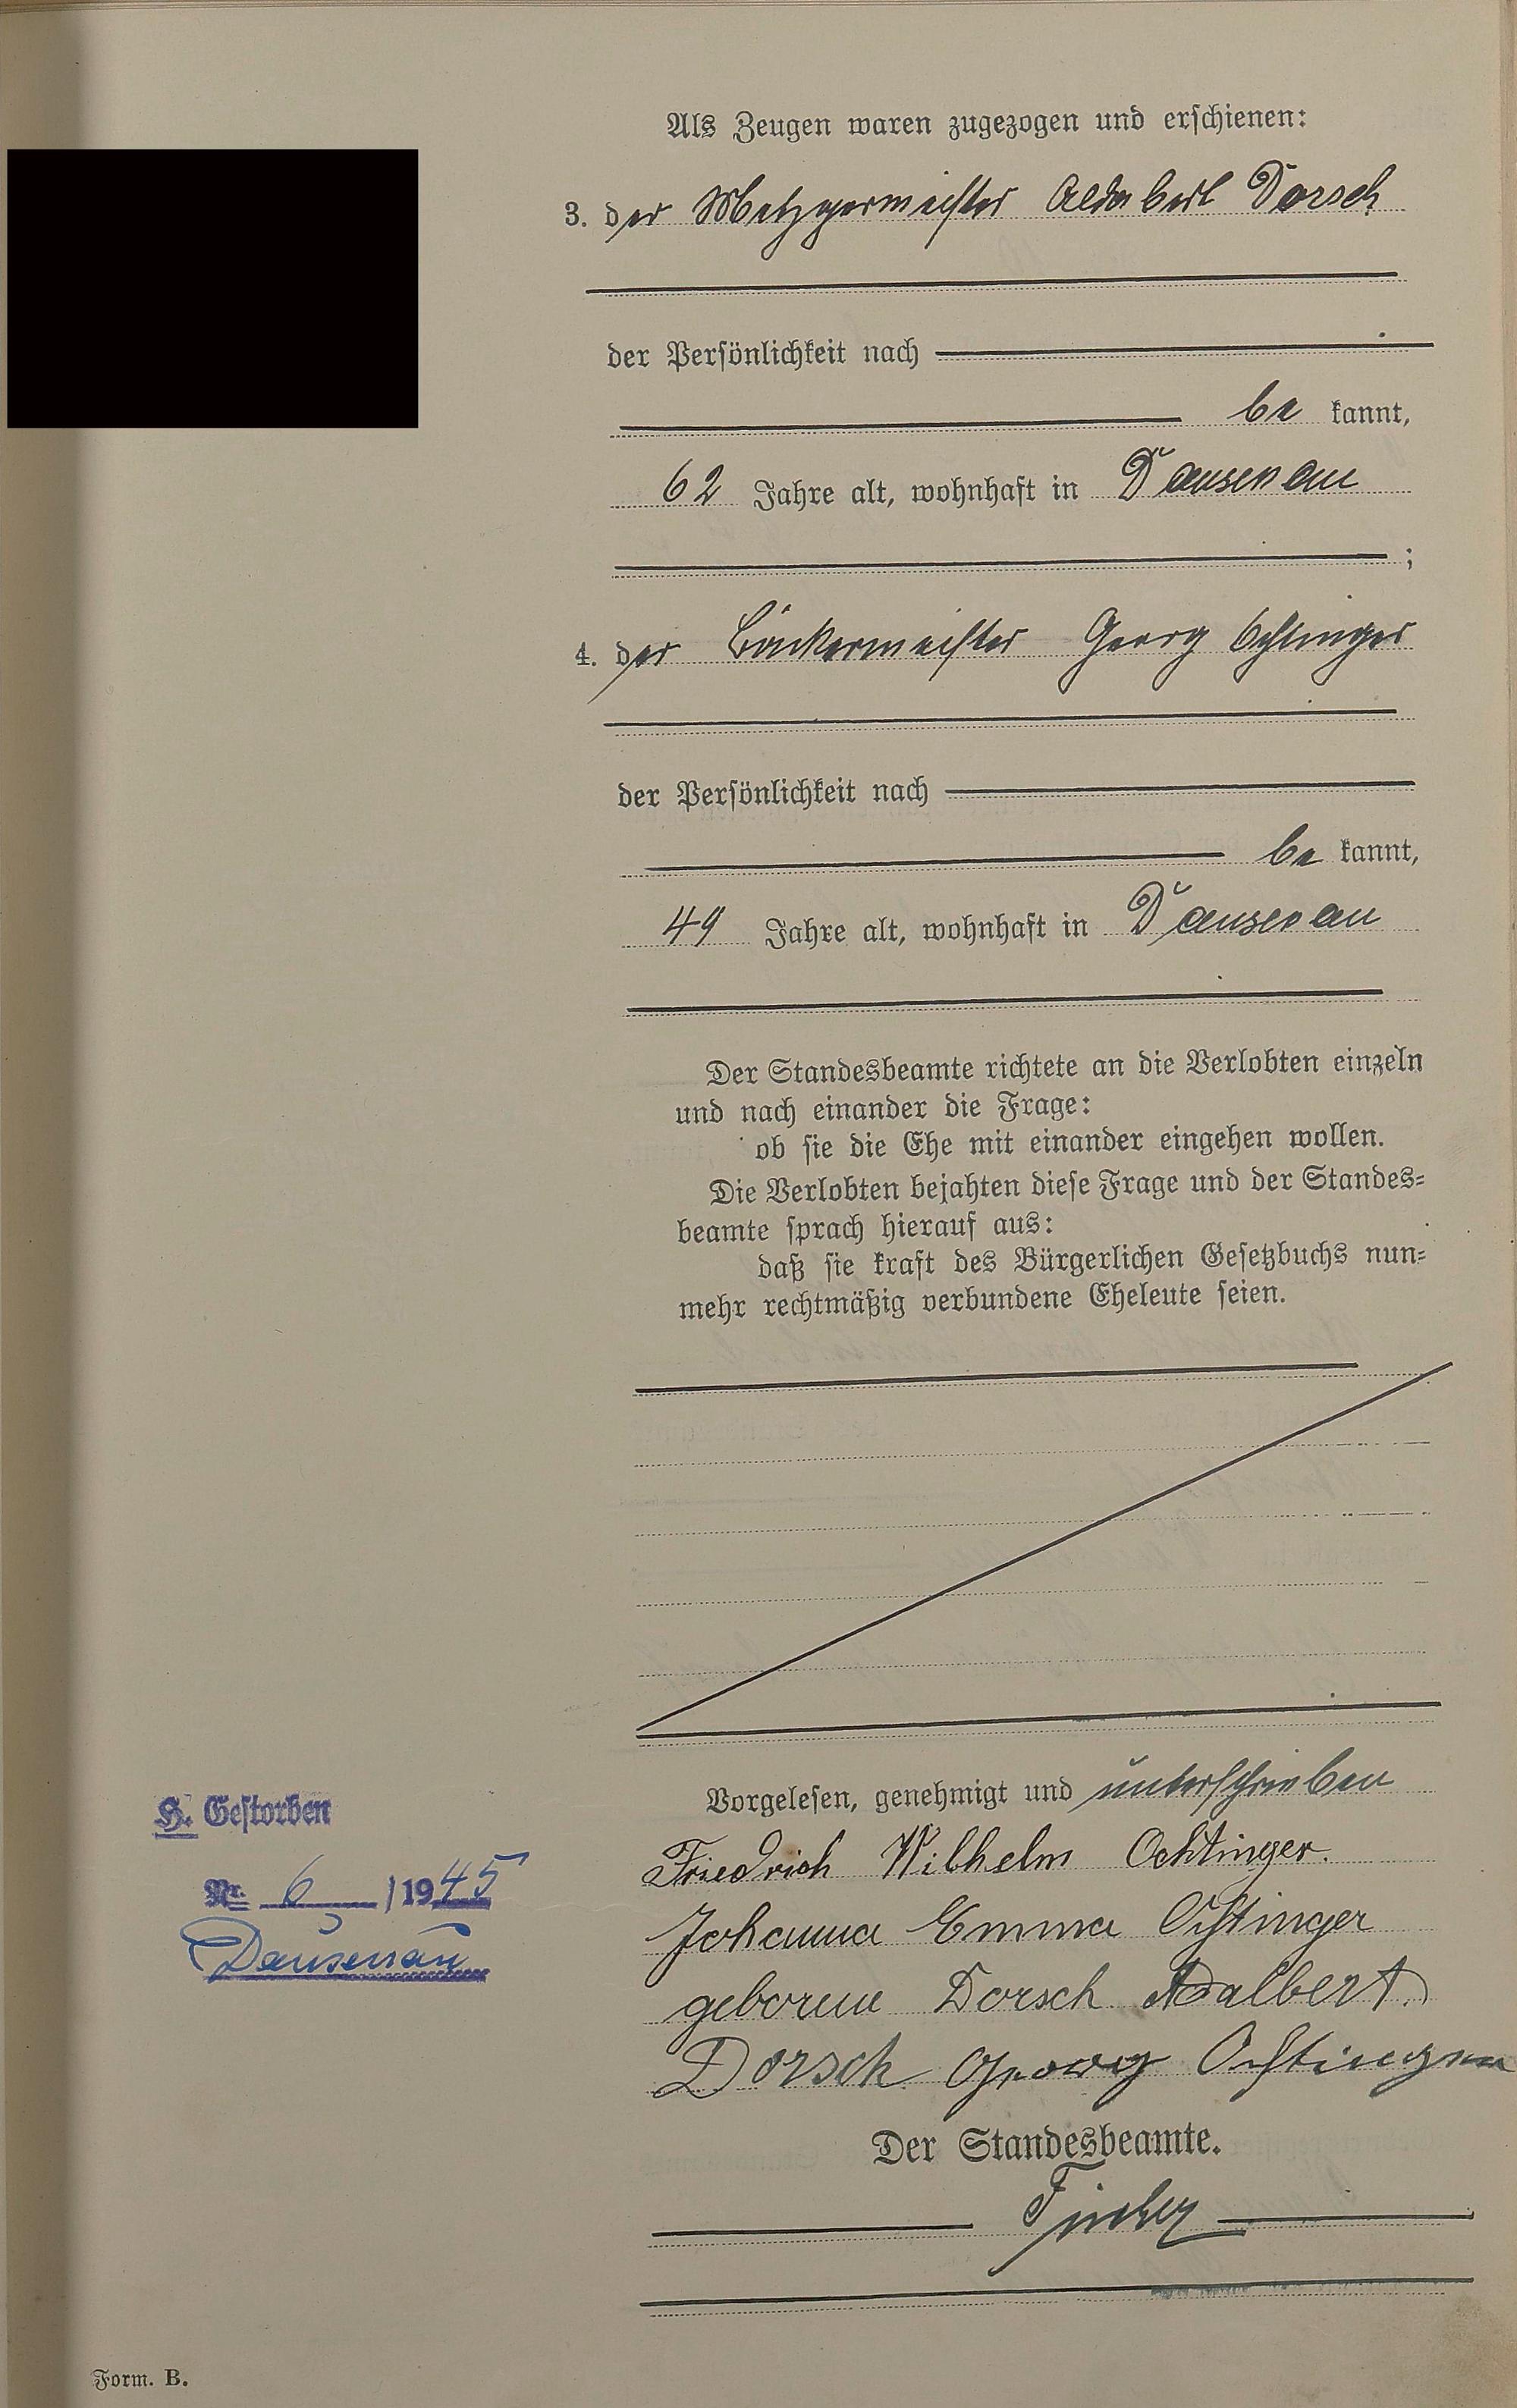 Als Zeugen waren zugezogen und erschienen:
3. der Metzgermeister Aldabert Dorsch
der Persönlichkeit nach
be kannt,
62 Jahre alt, wohnhaft in Dausenau
;
4. der Bäckermeister Georg Ochtinger
der Persönlichkeit nach
be kannt,
49 Jahre alt, wohnhaft in Dausenau
Der Standesbeamte richtete an die Verlobten einzeln
und nach einander die Frage:
ob sie die Ehe mit einander eingehen wollen.
Die Verlobten bejahten diese Frage und der Standes=
beamte sprach hierauf aus:
daß sie kraft des Bürgerlichen Gesetzbuchs nun=
mehr rechtmäßig verbundene Eheleute seien.
Vorgelesen, genehmigt und unterschrieben
Friedrich Wilhelm Ochtinger.
Johanna Emma Ochtinger
geborene Dorsch Adalbert
Dorsch Georg Ochtinger
Der Standesbeamte.
H. Gestorben
Nr. 6 /1945
Dausenau
Form. B.